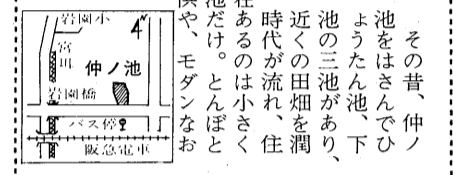 その昔、仲ノ
池をはさんでひ
ょうたん池、下
池の三池があり、
近くの田畑を潤
時代が流れ、住
在あるのは小さく
池だけ。とんぼと
供や、モダンなお
岩園小
宮川
仲ノ池
岩園橋
バス停
阪急電車